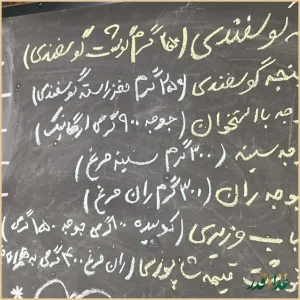 ه گوسفندی (۱۵۰ گرم گوشت گوسفندی)
نجه گوسفندی (۲۵۰ گرم مغز راسته گوسفندی)
جه با استخوان (جوجه ۹۰۰ گرمی ارگانیک)
جه سینه (۳۰۰ گرم سینه مرغ)
وجه ران (۳۰۰ گرم ران مرغ)
ب وزیری (کوبیده ۱۰۰ گرمی جوجه ۱۵۰ گرمی)
قیمه نثار پوزی (ران مرغ ۴۰۰ گرمی به همراه